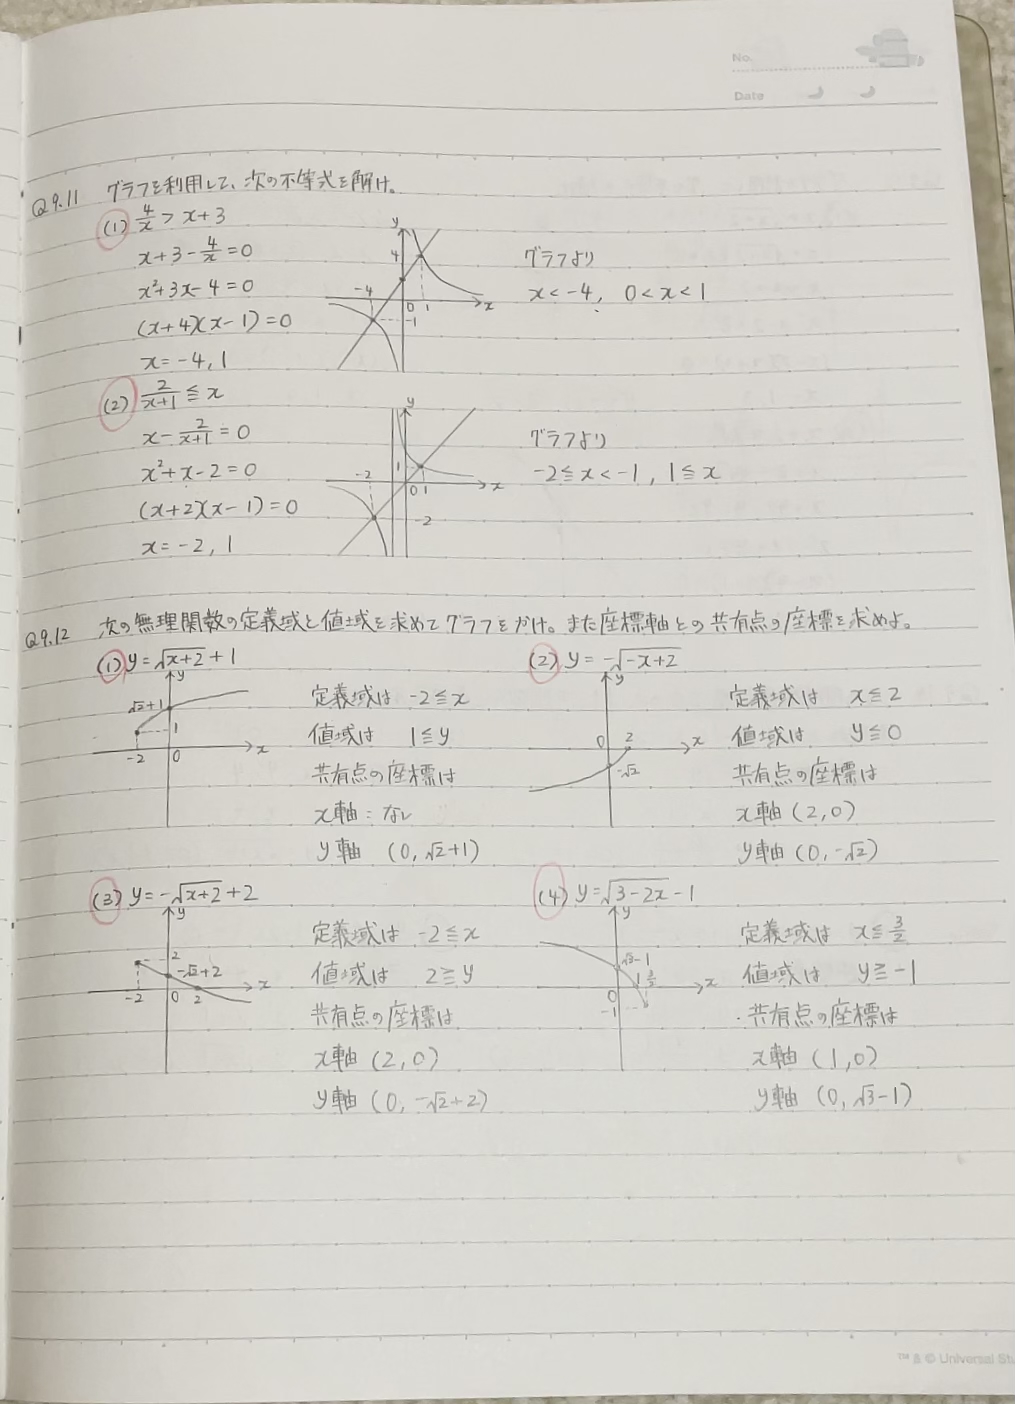 No.
Date
Q9.11 グラフを利用して、次の不等式を解け。
(1) 4/x > x+3
x+3-4/x=0
x²+3x-4=0
(x+4)(x-1)=0
x=-4, 1
y
4
-4
0 1 x
-1
グラフより
x<-4, 0<x<1
(2) 2/(x+1) ≦ x
x-2/(x+1)=0
x²+x-2=0
(x+2)(x-1)=0
x=-2, 1
y
-2 1
0 1 x
-2
グラフより
-2≦x<-1, 1≦x
Q9.12 次の無理関数の定義域と値域を求めてグラフをかけ。また座標軸との共有点の座標を求めよ。
(1) y=√(x+2)+1
y
√2+1
1
-2 0 x
定義域は -2≦x
値域は 1≦y
共有点の座標は
x軸：なし
y軸 (0, √2+1)
(2) y=-√(-x+2)
y
0 2 x
-√2
定義域は x≦2
値域は y≦0
共有点の座標は
x軸 (2,0)
y軸 (0, -√2)
(3) y=-√(x+2)+2
y
2
-√2+2
-2 0 2 x
定義域は -2≦x
値域は 2≧y
共有点の座標は
x軸 (2,0)
y軸 (0, -√2+2)
(4) y=√(3-2x)-1
y
√3-1
1 3/2 x
0
-1
定義域は x≦3/2
値域は y≧-1
共有点の座標は
x軸 (1,0)
y軸 (0, √3-1)
™ & © Universal Stu